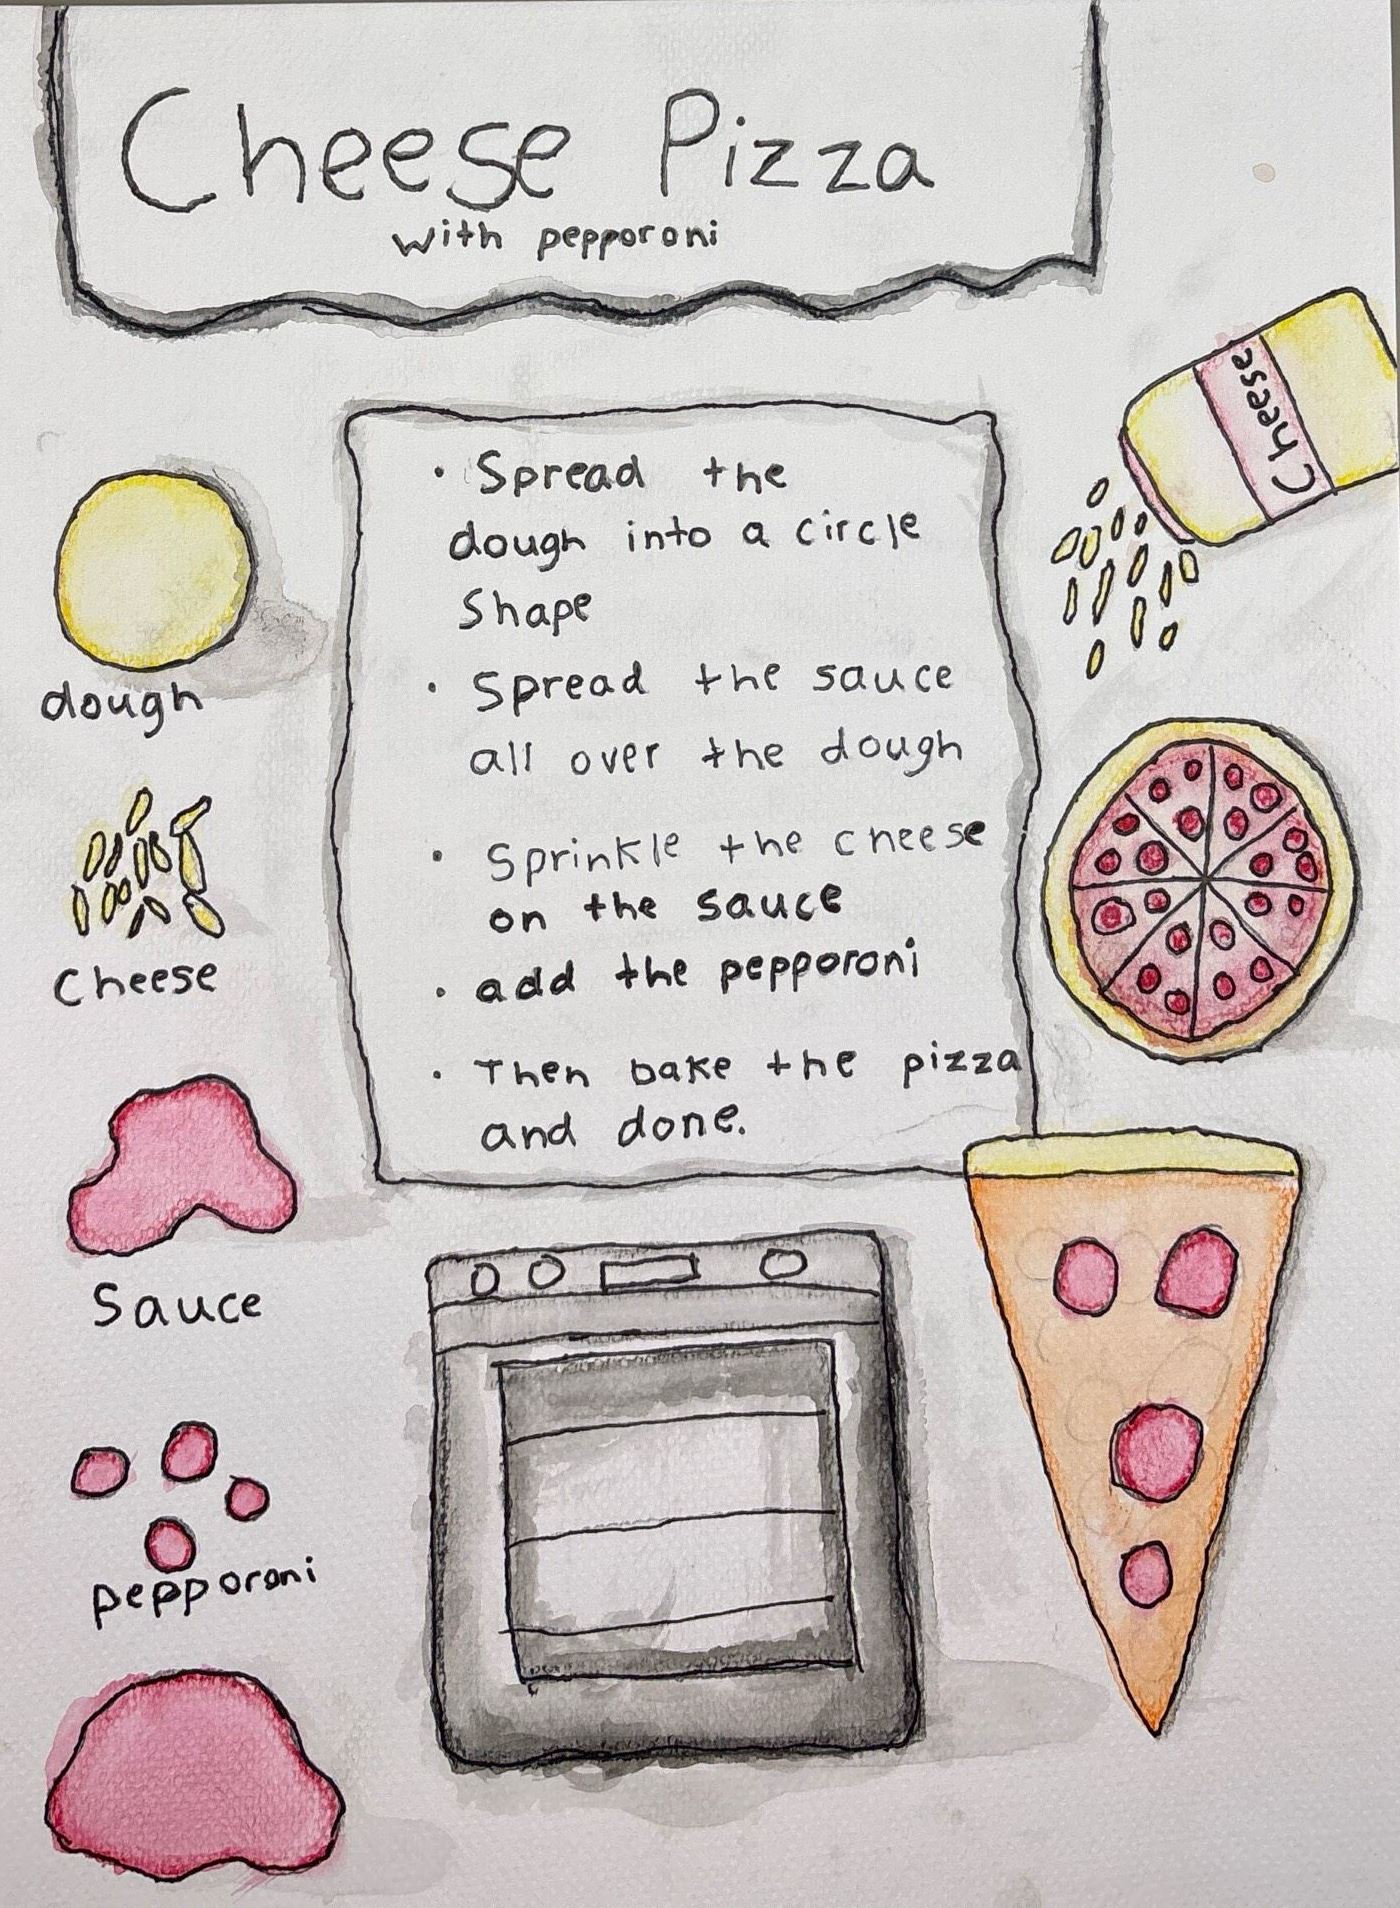 Cheese Pizza
with pepporoni
Cheese
• Spread the
dough into a circle
Shape
• Spread the sauce
all over the dough
• Sprinkle the cheese
on the sauce
• add the pepporoni
• Then bake the pizza
and done.
dough
Cheese
Sauce
pepporoni